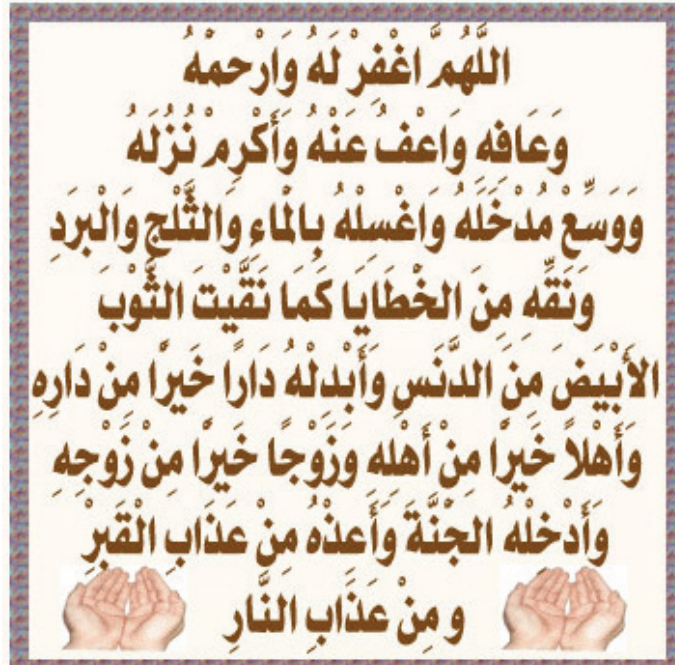 اللَّهُمَّ اغْفِرْ لَهُ وَارْحَمْهُ
وَعَافِهِ وَاعْفُ عَنْهُ وَأَكْرِمْ نُزُلَهُ
وَوَسِّعْ مُدْخَلَهُ وَاغْسِلْهُ بِالْمَاءِ وَالثَّلْجِ وَالْبَرَدِ
وَنَقِّهِ مِنَ الْخَطَايَا كَمَا نَقَّيْتَ الثَّوْبَ
الأَبْيَضَ مِنَ الدَّنَسِ وَأَبْدِلْهُ دَارًا خَيْرًا مِنْ دَارِهِ
وَأَهْلاً خَيْرًا مِنْ أَهْلِهِ وَزَوْجًا خَيْرًا مِنْ زَوْجِهِ
وَأَدْخِلْهُ الْجَنَّةَ وَأَعِذْهُ مِنْ عَذَابِ الْقَبْرِ
و مِنْ عَذَابِ النَّارِ